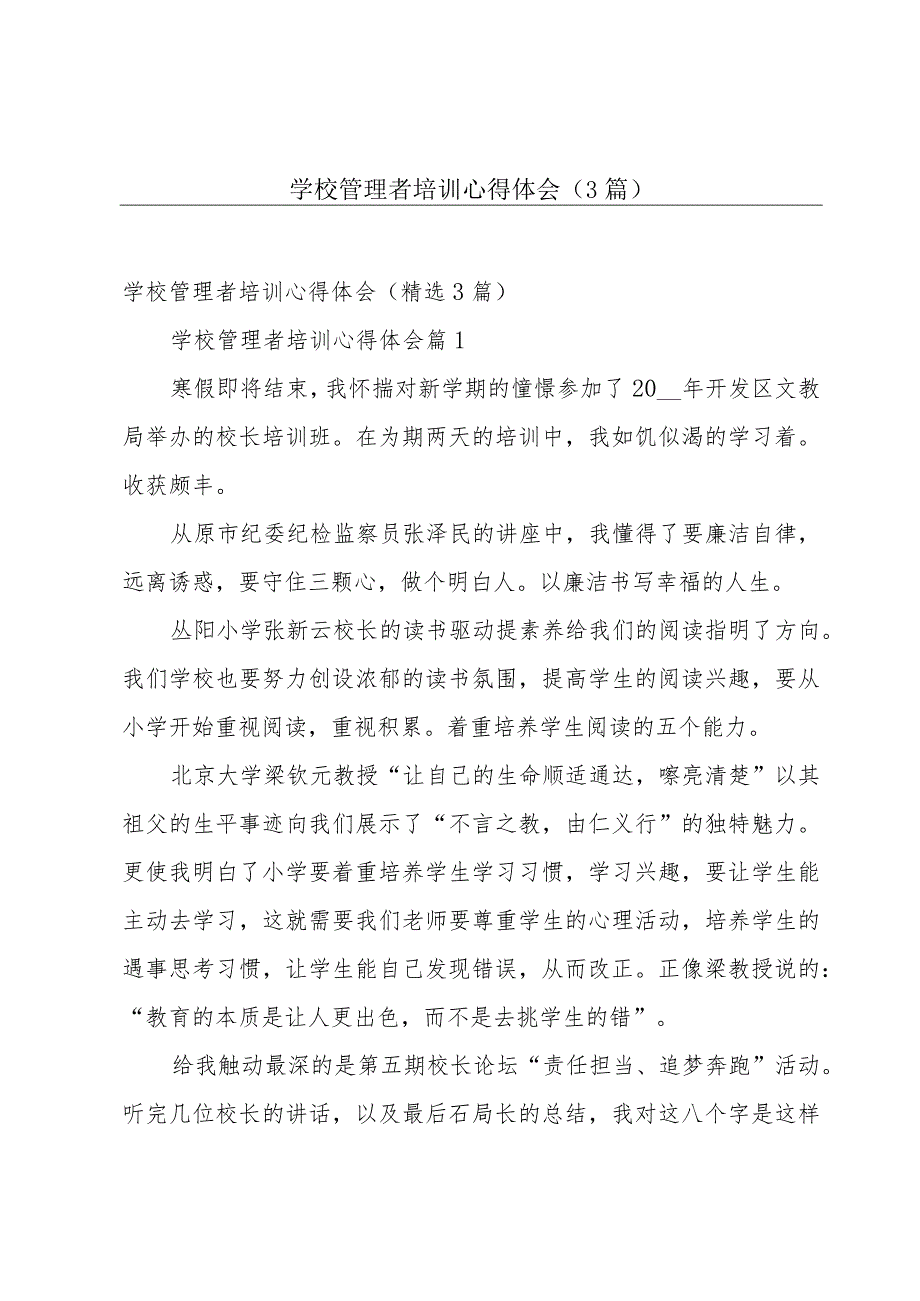 学校管理者培训心得体会（3 篇）
学校管理者培训心得体会（精选 3 篇）
学校管理者培训心得体会篇 1
寒假即将结束，我怀揣对新学期的憧憬参加了 20__年开发区文教
局举办的校长培训班。在为期两天的培训中，我如饥似渴的学习着。
收获颇丰。
从原市纪委纪检监察员张泽民的讲座中，我懂得了要廉洁自律，
远离诱惑，要守住三颗心，做个明白人。以廉洁书写幸福的人生。
丛阳小学张新云校长的读书驱动提素养给我们的阅读指明了方向。
我们学校也要努力创设浓郁的读书氛围，提高学生的阅读兴趣，要从
小学开始重视阅读，重视积累。着重培养学生阅读的五个能力。
北京大学梁钦元教授“让自己的生命顺适通达，嚓亮清楚”以其
祖父的生平事迹向我们展示了“不言之教，由仁义行”的独特魅力。
更使我明白了小学要着重培养学生学习习惯，学习兴趣，要让学生能
主动去学习，这就需要我们老师要尊重学生的心理活动，培养学生的
遇事思考习惯，让学生能自己发现错误，从而改正。正像梁教授说的：
“教育的本质是让人更出色，而不是去挑学生的错”。
给我触动最深的是第五期校长论坛“责任担当、追梦奔跑”活动。
听完几位校长的讲话，以及最后石局长的总结，我对这八个字是这样